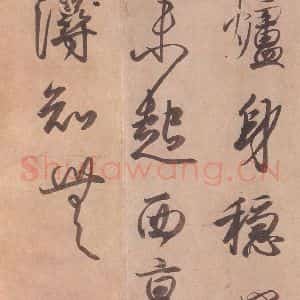 爐身穩
未起西
得知無
ShuFaWang.CN